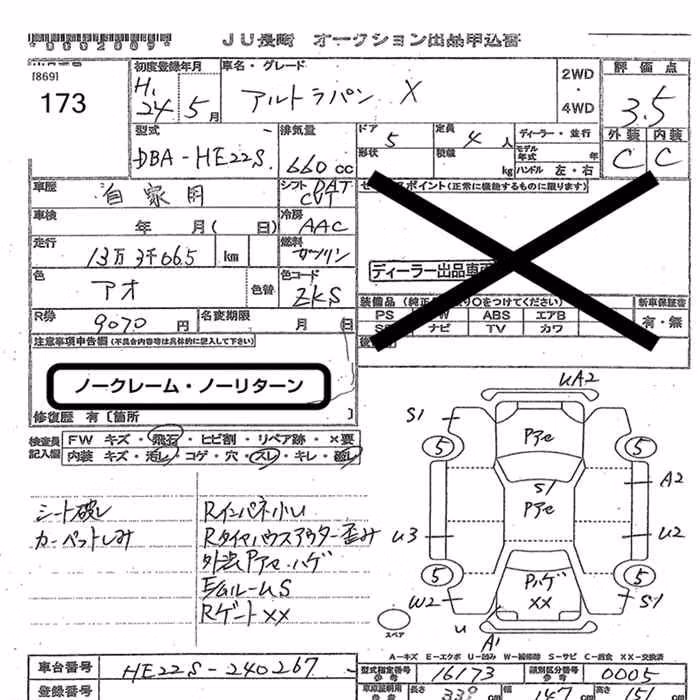 *0002009*
JU長崎 オークション出品申込書
[869]
173
初度登録年月
H.
24 5月
車名・グレード
アルトラパン X
2WD
・
4WD
評価点
3.5
外装 内装
C C
型式
DBA-HE22S
排気量
660 cc
ドア 5
定員 4人
ディーラー・並行
形状
積載 kg
モデル年式 年
ハンドル 左・右
車歴 自家用
シフト DAT
CVT
セールスポイント(正常に機能するものに限ります)
車検 年 月( 日)
冷房 AAC
走行 13万3千065 km
燃料 ガソリン
ディーラー出品車
色 アオ 色替
色コード ZKS
装備品(純正 りOをつけてください)
新車保証書
R券 9070 円
名変期限 月 日
PS PW ABS エアB
有・無
SR ナビ TV カワ
注意事項申告欄(不具合内容等は具体的に記入して下さい)
ノークレーム・ノーリターン
修復歴 有〔箇所 〕
検査員記入欄
FW キズ・飛石・ヒビ割・リペア跡・×要
内装 キズ・汚レ・コゲ・穴・スレ・キレ・破レ
シート破レ
カーペットしみ
Rインパネ小U
Rタイヤハウスアウター歪み
外法Pアセ、ハゲ
E/GルームS
Rゲート××
UA2
S1
Pアセ
5 5
S1
Pアセ
A2
U3
U2
5 5
Pハゲ
××
W2
S1
U
A1
スペア
A-キズ E-エクボ U-凹み W-補修跡 S-サビ C-腐食 XX-交換済
車台番号 HE22S-240267
型式指定番号 16173
類別区分番号 0005
登録番号
長さ 339 cm
幅 147 cm
高さ 151 cm